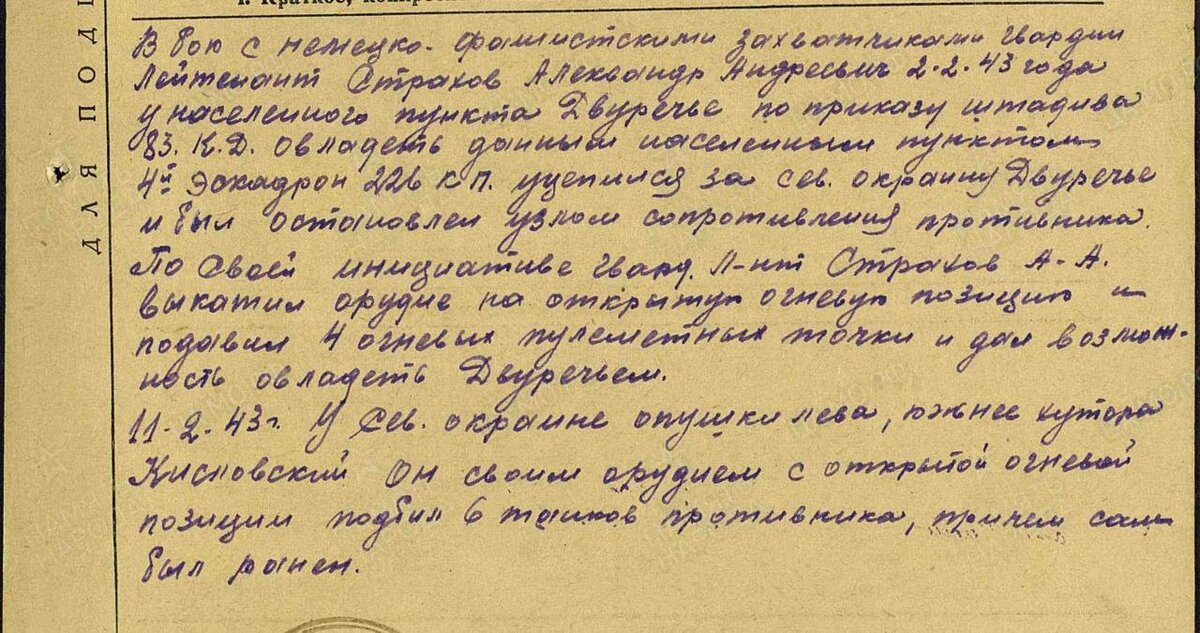 1. Краткое,
ДЛЯ ПОД
В бою с немецко-фашистскими захватчиками гвардии
Лейтенант Страхов Александр Андреевич 2-2-43 года
у населенного пункта Двуречье по приказу штадива
83. К.Д. овладеть данным населенным пунктом
4й эскадрон 226 к п. уцепился за сев. окраину Двуречье
и был остановлен узлом сопротивления противника.
По своей инициативе гвард. Л-нт Страхов А-А.
выкатил орудие на открытую огневую позицию и
подавил 4 огневых пулеметных точки и дал возмож-
ность овладеть Двуречьем.
11-2-43г. У Сев. окраине опушки лева, южнее хутора
Кисловский Он своим орудием с открытой огневой
позиции подбил 6 танков противника, причем сам
был ранен.